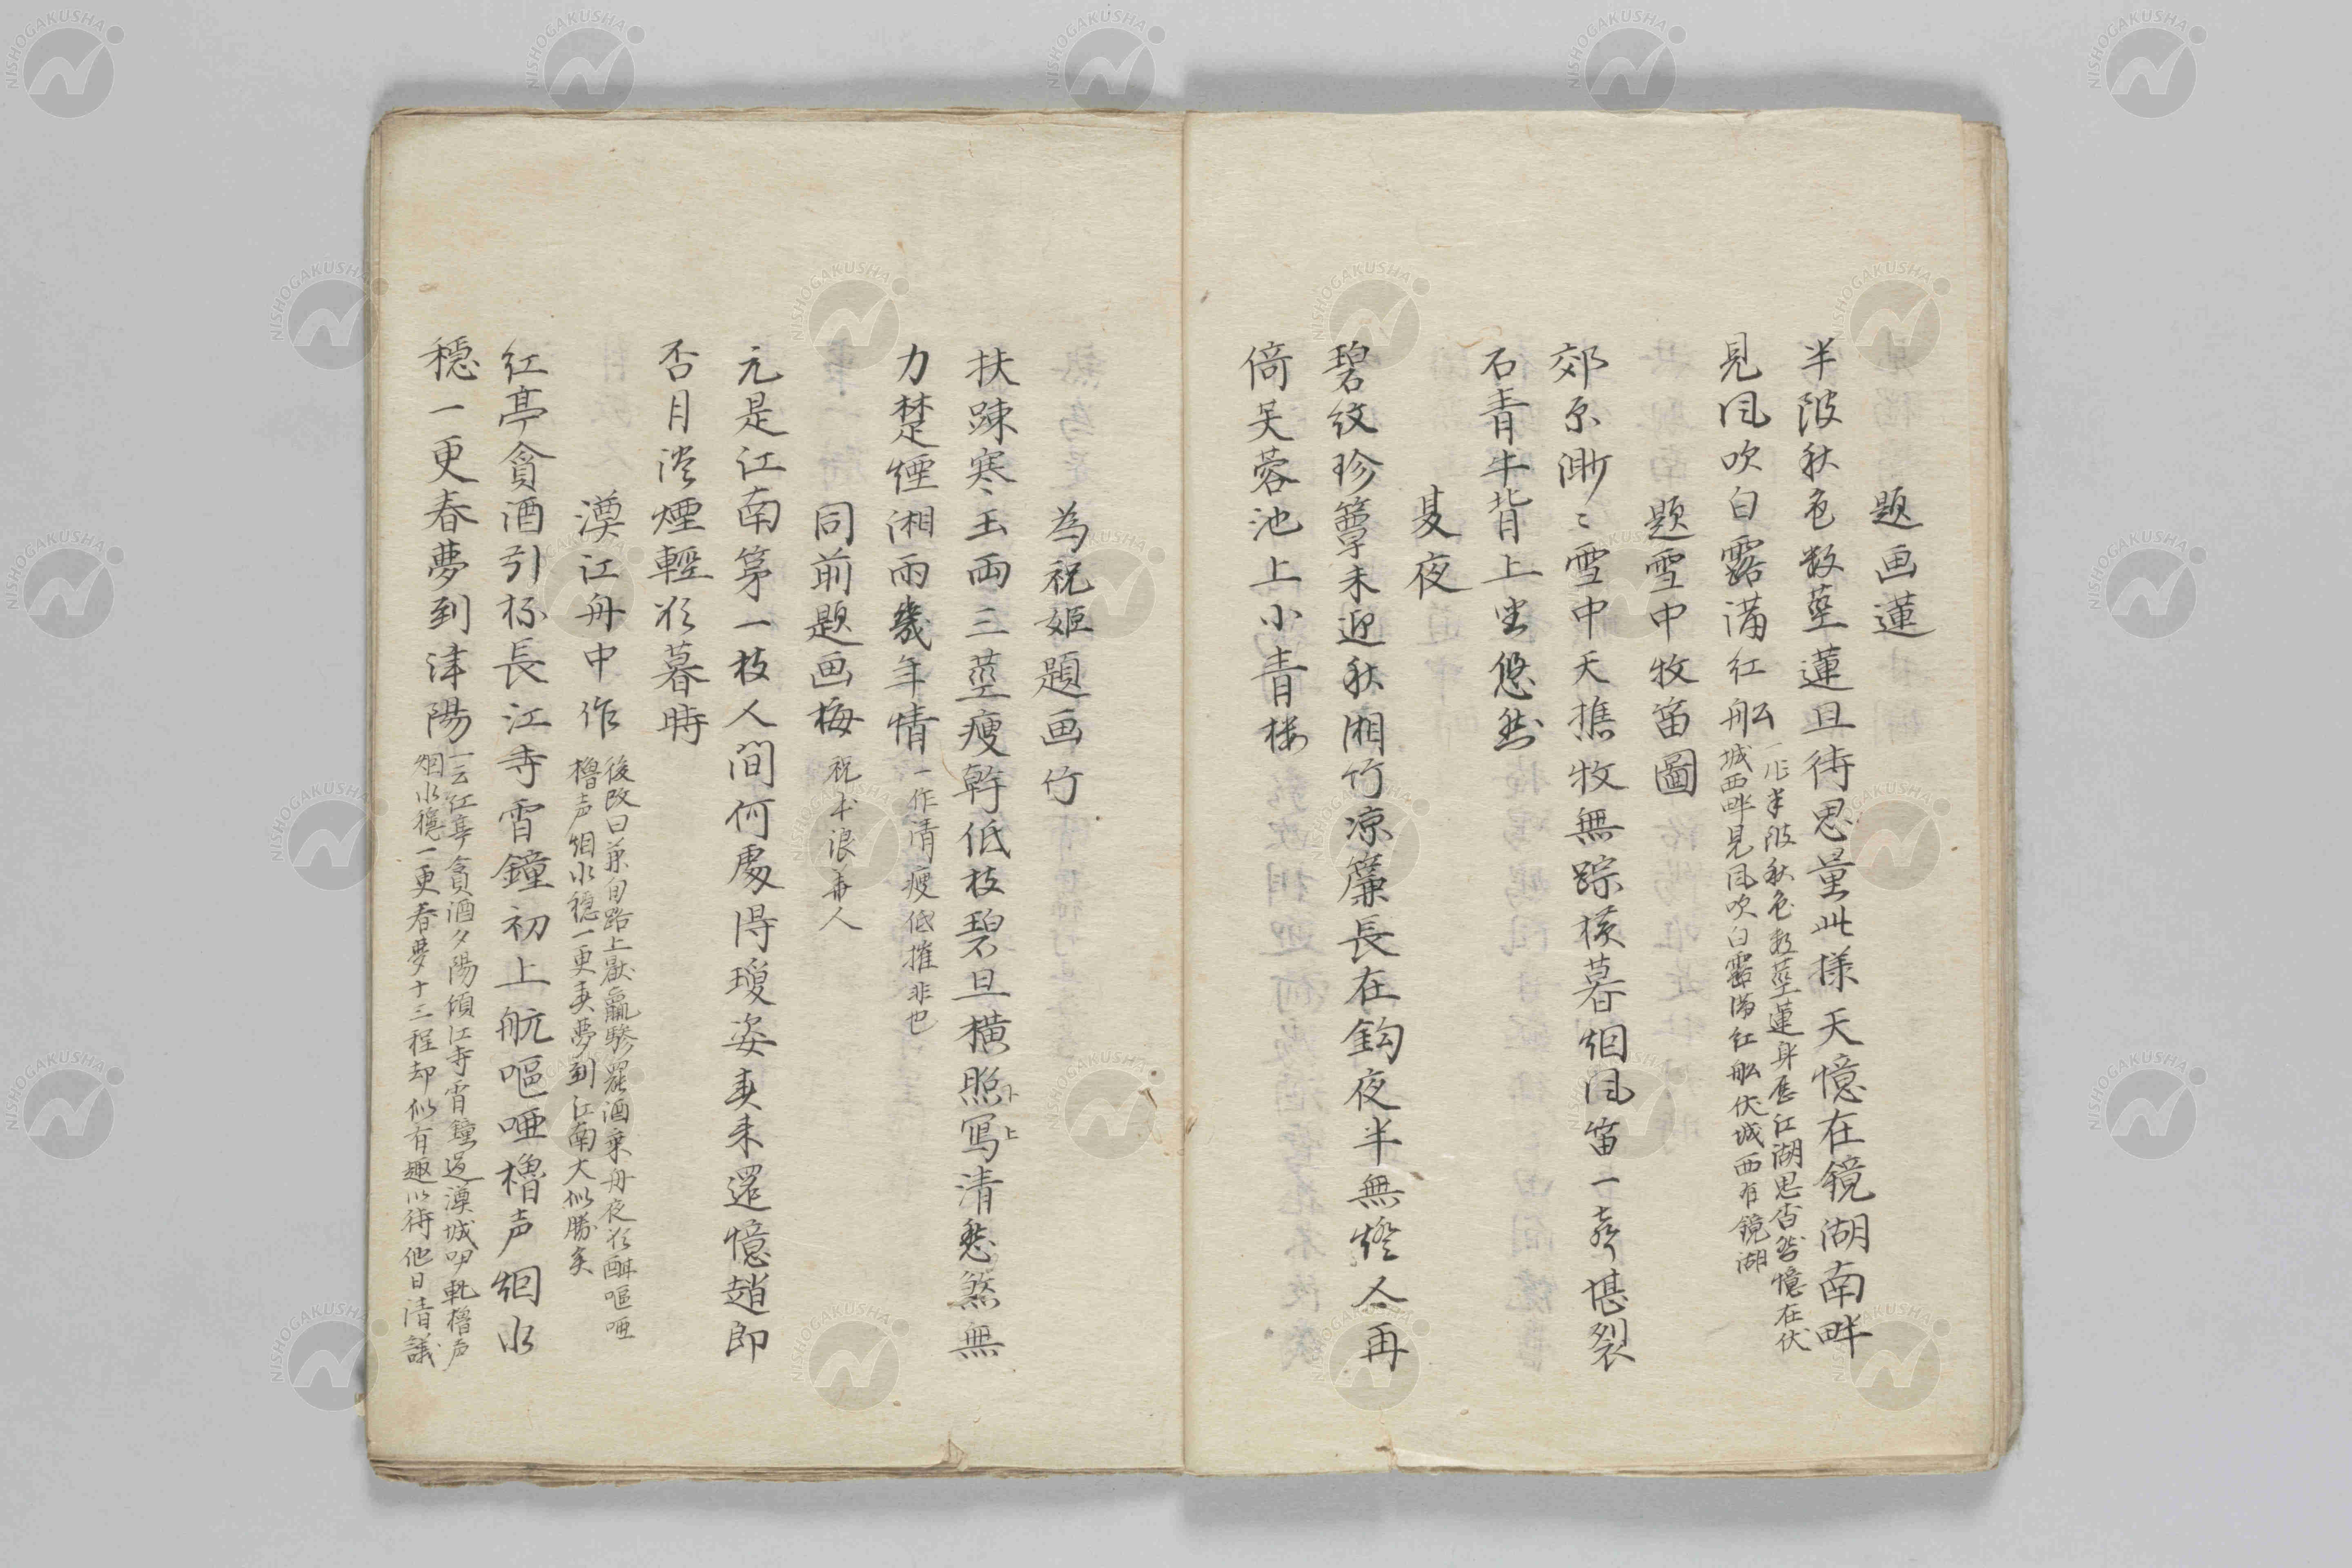 題画蓮
半陂秋色数莖蓮且待思量此様天憶在鏡湖南畔
見风吹白露満紅船
一作半陂秋色数莖蓮身在江湖思杳然憶在伏
城西畔見风吹白露満紅船伏城西有鏡湖
題雪中牧笛圖
郊原渺々雪中天樵牧無踪横暮烟风笛一声堪裂
石青牛背上坐悠然
夏夜
碧紋珍簟未迎秋湘竹凉簾長在鈎夜半無燈人再
倚芙蓉池上小青楼
為祝姫題画竹
扶踈寒玉両三莖瘦幹低枝碧且横照写清愁煞無
力楚煙湘雨幾年情
一作清瘦低摧非也
同前題画梅
祝本浪華人
元是江南第一枝人間何處得瓊姿夫来還憶趙郎
否月淡煙輕欲暮時
漠江舟中作
後改曰兼旬路上厭羸驂罷酒乗舟夜欲酣嘔哑
櫓声烟水穏一更春夢到江南大似勝矣
紅亭貪酒引杯長江寺宵鐘初上航嘔哑櫓声烟水
穏一更春夢到津陽
一云紅亭貪酒夕陽傾江寺宵鐘過漠城咿軋櫓声
烟水穏一更春夢十三程却似有趣以待他日清議